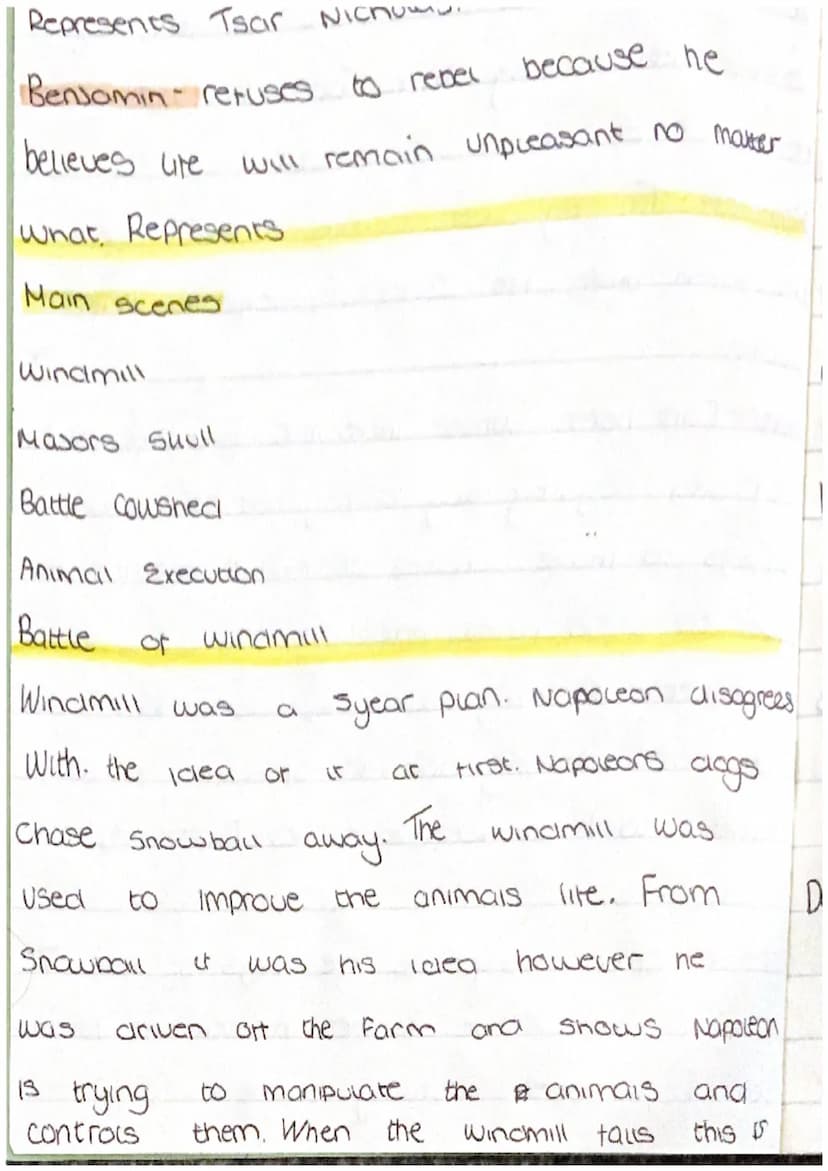 Represents Tsar Nicholas.
Benjamin - refuses to rebel because he
believes life will remain unpleasant no matter
what. Represents
Main scenes
Windmill
Majors Skull
Battle Cowshed
Animal Execution
Battle of windmill
Windmill was a 5year plan. Napoleon disagrees
With. the idea of it at first. Napoleons dogs
Chase Snowball away. The windmill was
Used to improve the animals life. From
Snowball it was his idea however he
was driven off the Farm and shows Napoleon
is trying to manipulate the animals and
controls them. When the windmill falls this is
D